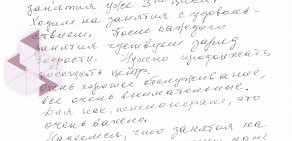 занятия уже 3 месяца.
Ходим на занятия с удоволь-
ствием, После каждого
занятия чувствуем заряд
бодрости. Нужно продолжать
посещать центр.
Очень хорошее обслуживание,
все очень внимательные.
Для нас, пенсионерам, это
очень важно.
Надеемся, что занятия на